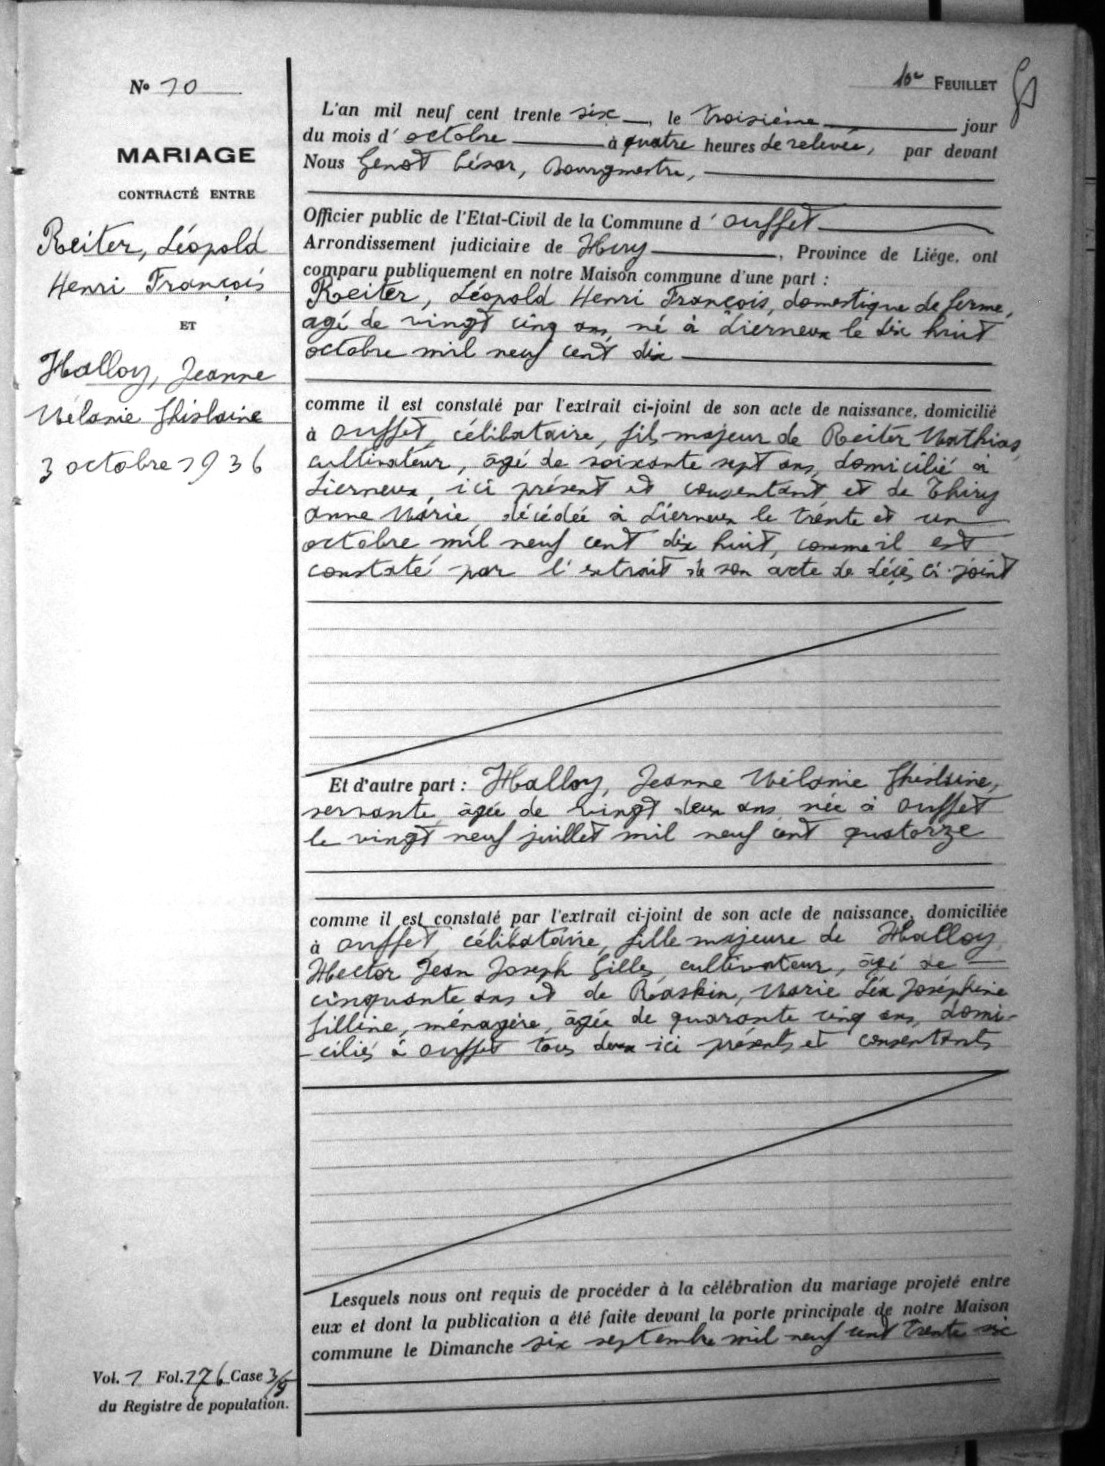 Nº 10
MARIAGE
CONTRACTÉ ENTRE
Reiter, Léopold
Henri François
ET
Halloy, Jeanne
Mélanie Ghislaine
3 octobre 1936
Vol. 1 Fol. 176 Case 3/5
du Registre de population.
10e FEUILLET
L'an mil neuf cent trente six, le troisième jour
du mois d'octobre à quatre heures de relevée, par devant
Nous Genot César, Bourgmestre,
Officier public de l'Etat-Civil de la Commune d'Ouffet
Arrondissement judiciaire de Huy, Province de Liége, ont
comparu publiquement en notre Maison commune d'une part :
Reiter, Léopold Henri François, domestique de ferme,
agé de vingt cinq ans, né à Lierneux le dix huit
octobre mil neuf cent dix
comme il est constaté par l'extrait ci-joint de son acte de naissance, domicilié
à Ouffet, célibataire, fils majeur de Reiter Mathias,
cultivateur, âgé de soixante sept ans, domicilié à
Lierneux, ici présent et consentant et de Thiry
Anne Marie décédée à Lierneux le trente et un
octobre mil neuf cent dix huit, comme il est
constaté par l'extrait de son acte de décès ci-joint
Et d'autre part : Halloy, Jeanne Mélanie Ghislaine,
servante, âgée de vingt deux ans, née à Ouffet
le vingt neuf juillet mil neuf cent quatorze
comme il est constaté par l'extrait ci-joint de son acte de naissance, domiciliée
à Ouffet, célibataire, fille majeure de Halloy
Hector Jean Joseph Gilles, cultivateur, âgé de
cinquante ans et de Raskin, Marie Léa Joséphine
Filline, ménagère, âgée de quarante cinq ans, domi-
-ciliés à Ouffet tous deux ici présents et consentants
Lesquels nous ont requis de procéder à la célébration du mariage projeté entre
eux et dont la publication a été faite devant la porte principale de notre Maison
commune le Dimanche six septembre mil neuf cent trente six